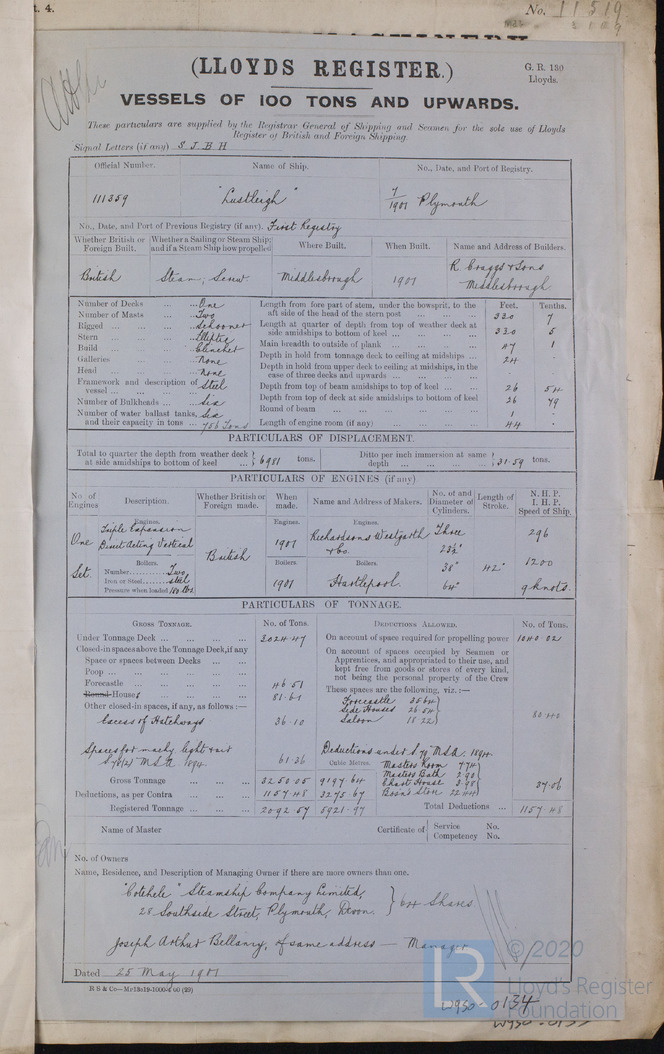 t. 4.
No. 11519
(LLOYDS REGISTER.)
G. R. 130
Lloyds.
VESSELS OF 100 TONS AND UPWARDS.
These particulars are supplied by the Registrar General of Shipping and Seamen for the sole use of Lloyds
Register of British and Foreign Shipping.
Signal Letters (if any) S J B H
Official Number. Name of Ship. No., Date, and Port of Registry.
111359 "Lustleigh" 7/1901 Plymouth
No., Date, and Port of Previous Registry (if any). First Registry
Whether British or Foreign Built. Whether a Sailing or Steam Ship; and if a Steam Ship how propelled Where Built. When Built. Name and Address of Builders.
British Steam; Screw Middlesborough 1901 R. Craggs & Sons
Middlesborough
Number of Decks One
Number of Masts Two
Rigged Schooner
Stern Elliptic
Build Clencher
Galleries None
Head None
Framework and description of vessel Steel
Number of Bulkheads Six
Number of water ballast tanks, and their capacity in tons Six 756 Tons
Feet. Tenths.
Length from fore part of stem, under the bowsprit, to the aft side of the head of the stern post 320 7
Length at quarter of depth from top of weather deck at side amidships to bottom of keel 320 5
Main breadth to outside of plank 47 1
Depth in hold from tonnage deck to ceiling at midships 24
Depth in hold from upper deck to ceiling at midships, in the case of three decks and upwards
Depth from top of beam amidships to top of keel 26 54
Depth from top of deck at side amidships to bottom of keel 26 79
Round of beam 1 -
Length of engine room (if any) 44 -
PARTICULARS OF DISPLACEMENT.
Total to quarter the depth from weather deck at side amidships to bottom of keel 6981 tons. Ditto per inch immersion at same depth 31.59 tons.
PARTICULARS OF ENGINES (if any)
No. of Engines Description. Whether British or Foreign made. When made. Name and Address of Makers. No. of and Diameter of Cylinders. Length of Stroke. N. H. P. I. H. P. Speed of Ship.
Engines. Engines. Engines.
One Triple Expansion British 1901 Richardsons Westgarth Three 296
Direct Acting Vertical & Co. 23½"
Boilers. Boilers. Boilers.
Set. Number Two 38" 42" 1200
Iron or Steel Steel 1901 Hartlepool 64" 9 knots
Pressure when loaded 180 lbs
PARTICULARS OF TONNAGE.
GROSS TONNAGE. No. of Tons. DEDUCTIONS ALLOWED. No. of Tons.
Under Tonnage Deck 3024.47
Closed-in spaces above the Tonnage Deck, if any
Space or spaces between Decks
Poop
Forecastle 46.51
Round Houses 81.61
Other closed-in spaces, if any, as follows:—
Excess of Hatchways 36.10
Spaces for machy light & air
S 78(2) M.S.A. 1894. 61.36
Gross Tonnage 3250.05 9197.64
Deductions, as per Contra 1157.48 3275.67
Registered Tonnage 2092.57 5921.97
On account of space required for propelling power 1040.02
On account of spaces occupied by Seamen or
Apprentices, and appropriated to their use, and
kept free from goods or stores of every kind,
not being the personal property of the Crew
These spaces are the following, viz.:—
Forecastle 35.64
Side Houses 26.54
Saloon 18.22
80.40
Deductions under S. 79 M.S.A. 1894.
Cubic Metres.
Masters Room 7.74
Masters Bath 2.90
Chart House 3.98
Bosn's Store 22.44
37.06
Total Deductions 1157.48
Name of Master Certificate of Service No.
Competency No.
No. of Owners
Name, Residence, and Description of Managing Owner if there are more owners than one.
"Cotehele" Steamship Company Limited,
28 Southside Street, Plymouth, Devon. } 64 Shares
Joseph Arthur Bellamy, of same address — Manager
Dated 25 May 1901
© 2020
Lloyd's Register
Foundation
W930-0134